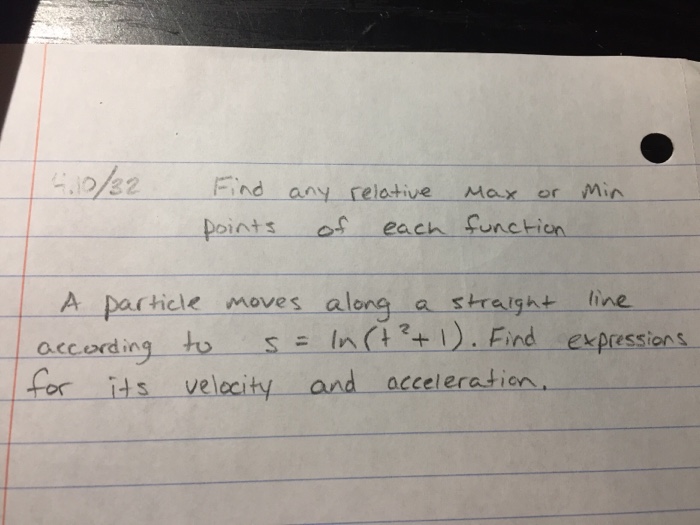 4.10/32 Find any relative Max or Min
points of each function
A particle moves along a straight line
according to s = ln(t²+1). Find expressions
for its velocity and acceleration.